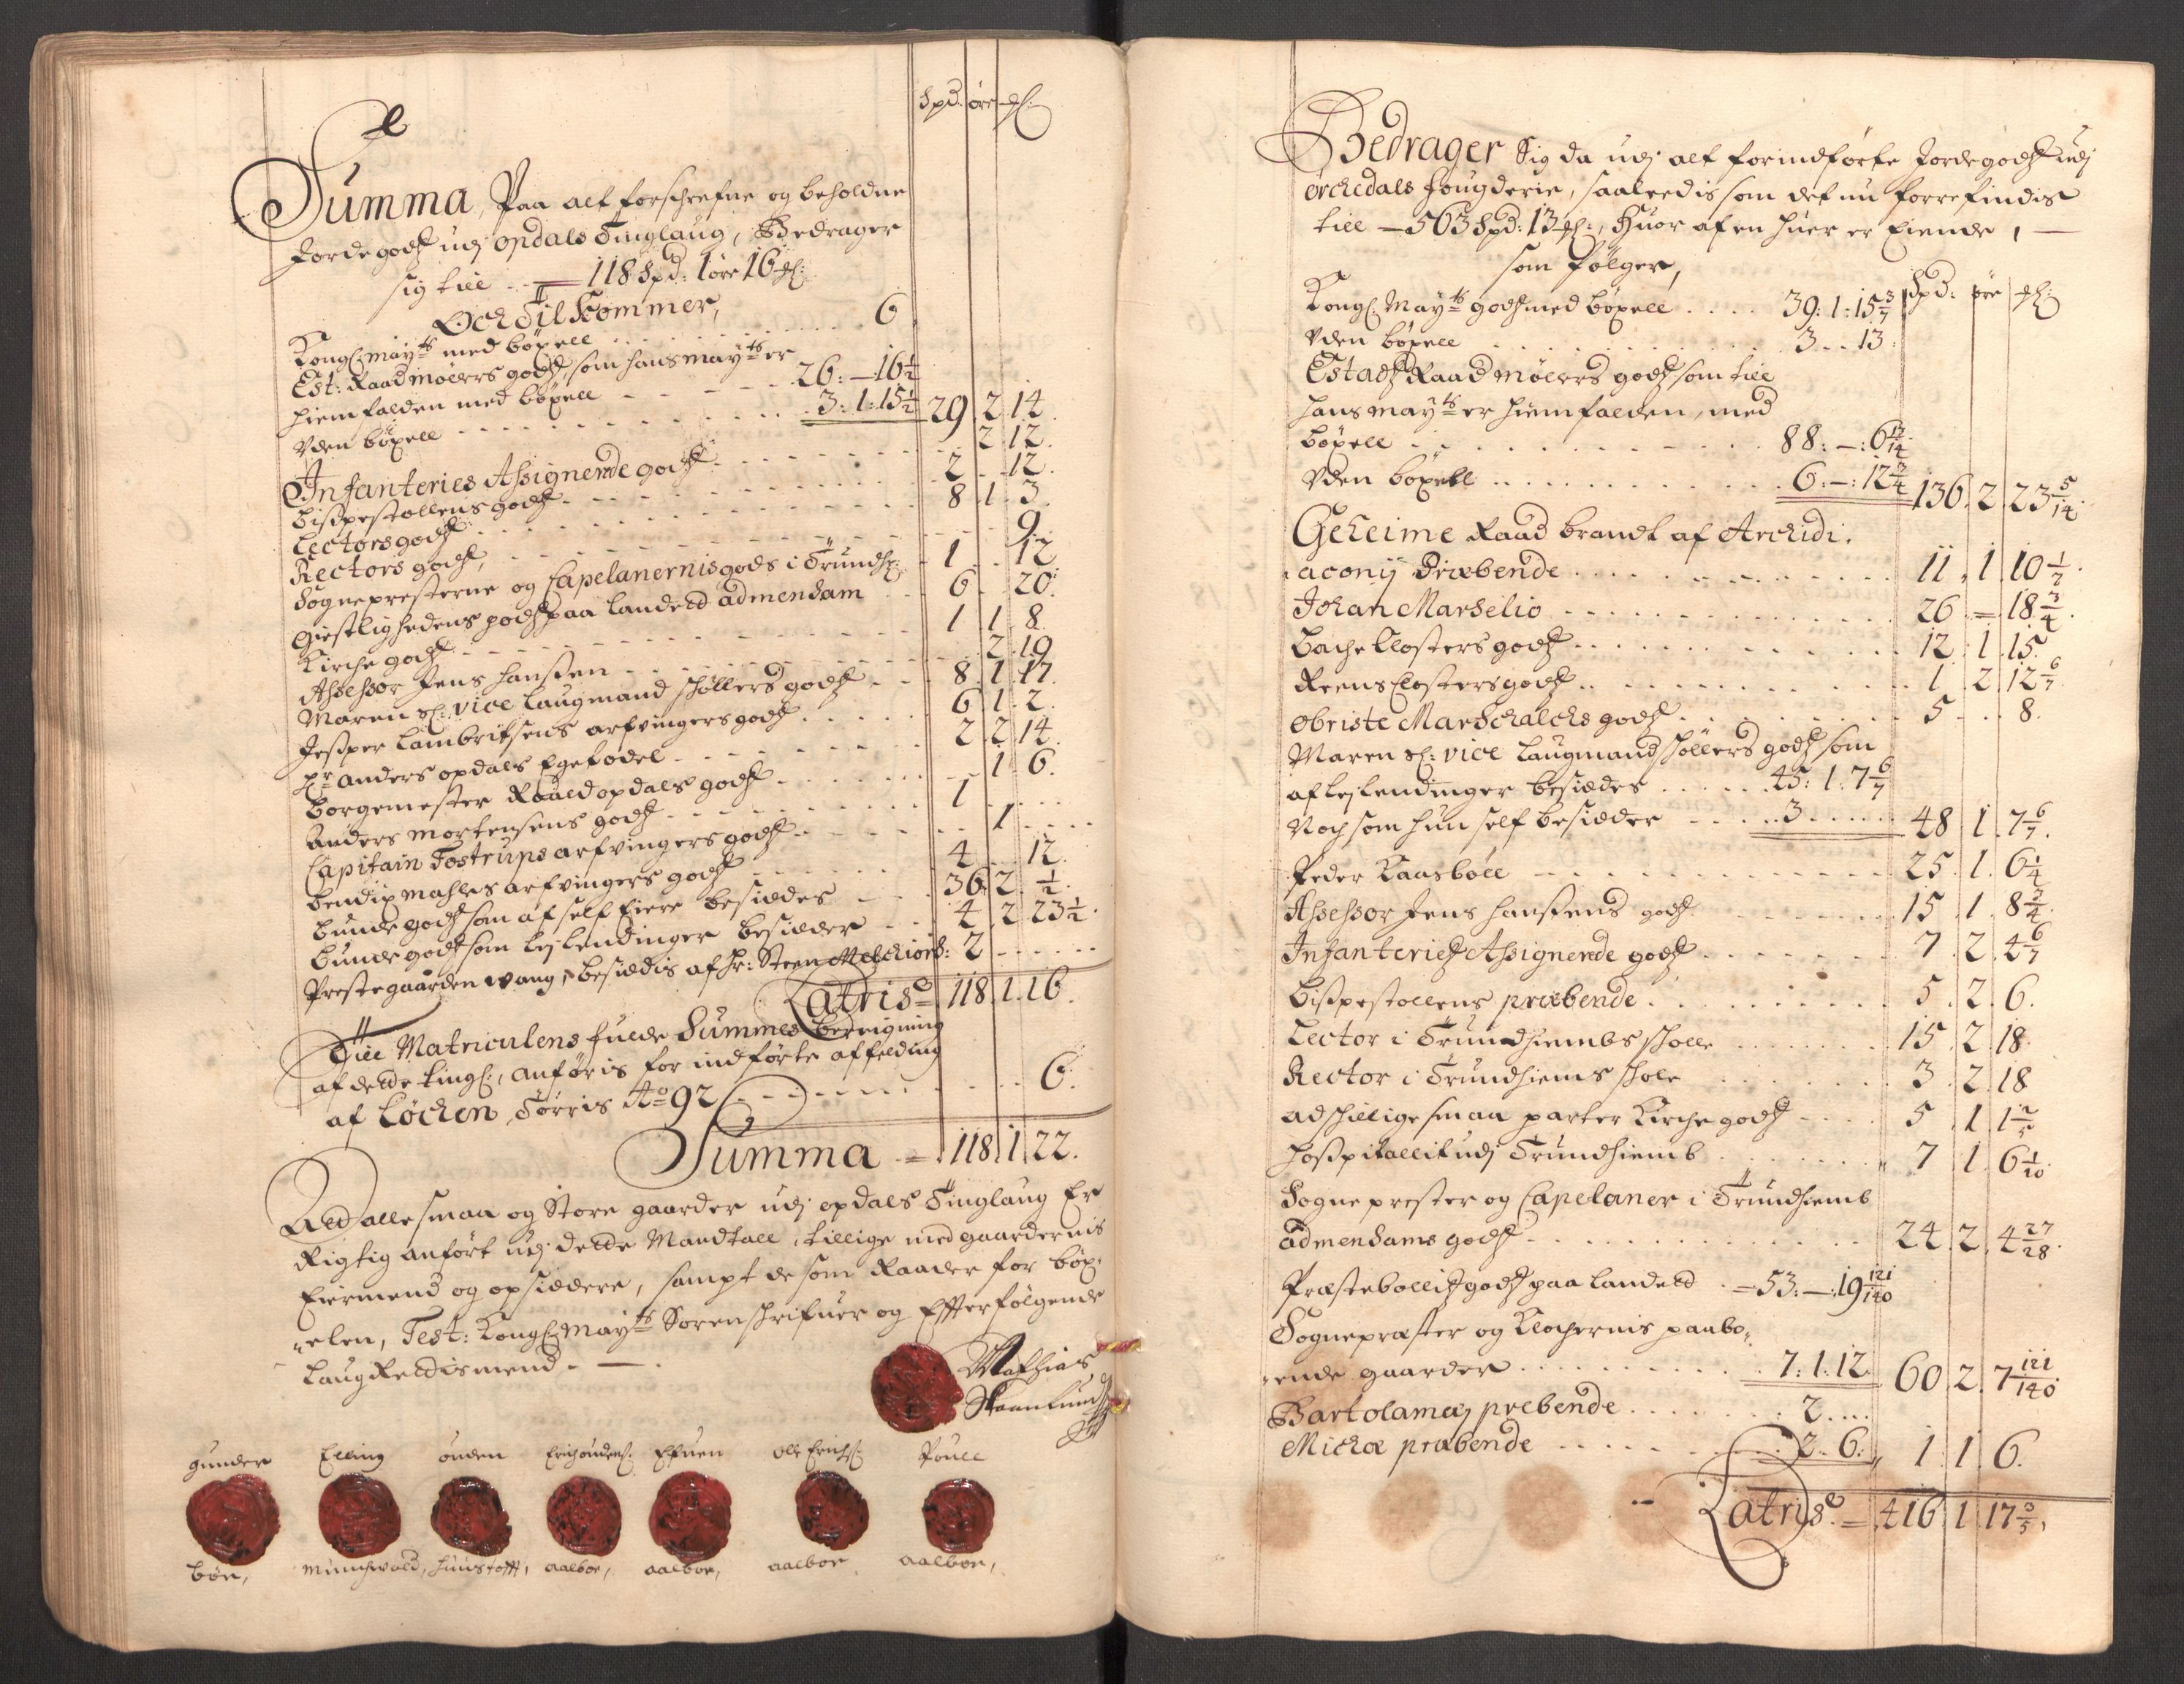 Spd: öre ₰:
Summa, Paa alt forschrefne og beholdne
Jordegodtz udj Opdals Tinglaug, Bedrager
sig till — 118 Spd: 1 öre 16 ₰:
Och Tilkommer,
Kongl: mayts med böxell . . . . . 6
Est: Raad möllers godtz, som hans mayts er
hiemfalden med böxell - - - 26: — 16½
Uden böxell . . . . 3: 1: 15½ 29 2 14.
Infanteries Assignerede godtz . . . 2 12.
Bispestollens godtz . . . 2 . . 12.
Lectors godtz . . . 8 1 3
Rectors godtz, . . . 9.
Sognepresterne og Capelanernis gods i Trundhz: 1 . . 12
Giestlighedens godtz paa landet ad mensam . . 6 . . 20.
Kirche godtz . . . 1 1 8.
Assessor Jens Hanssen . . . 2 19
Maren Sl: vice Laugmand Schöllers godtz . . 8 1 17.
Jesper Lambritsens arfvingers godtz . . 6 1 2.
Hr Anders Opdals Egetodel . . . 2 2 14
Borgemester Roald opdals godtz . . . 1 6.
Anders Mortensens godtz . . . 1 . . .
Capitain Tostrups arfvingers godtz . . . 1 . . .
Bendix Mahlers arfvingers godtz . . . 4 . . 12.
Bunde godtz som af self Eiere besiddes . . . 36 2 ½.
Bunde godtz som leylendinger besidder . . 4 2 23½.
Prestegaarden Wang, besiddis af Hr: Steen Melchiors: 2 . . .
Latris 118 1 16.
Till Matriculens fulde Summes Beregning
af dette tingl:, anföris for indförte affelding
af Löcken Törris Ao 92 . . . 6.
Summa = 118 1 22.
At alle smaa og Store gaarder udj opdals Tinglaug Er
Rigtig anfört udj dette Mandtall, tillige med gaardernis
Eiermend og opsiddere, sampt de som Raader for böx-
elen, Test: Kongl: mayts Sorenschrifuer og Effterfölgende
Laug Rettismend. —
Mathias
Skaanlund
Gunder Elling Ouden Erich oudens: Efuen Olle Erichs: Pouell
böe, munchvold, huustofft, aalboe, aalboe, aalboe aalboe,
Bedrager Sig da udj alt forindförte Jordegodtz udj
Orchedals fougderie, saaledis som det nu forrefindis
till — 563 Spd: 13 ₰:, huor af en huer er Eiende, —
som fölger,
Spd: öre ₰:
Kongl: Mayts godtz med böxell . . . 39: 1: 15 3/7
Uden böxell . . . 3 . . 13.
Estadtz Raad möllers godtz som till
hans mayts er hiemfalden, med
böxell . . . 88: —: 6 13/14
Uden böxell . . . 6: —: 12 3/4 136 2 23 5/14
Geheime Raad brandt af Archidi:
aconij Præbende . . . 11 1 10 1/7
Johan Marselio . . . 26 = 18 3/4
Bache Closters godtz . . . 12 1 15.
Reens Closters godtz . . . 1 2 12 6/7
Obriste Marschalchs godtz . . . 5 . . 8.
Maren Sl: vice Laugmand Schöllers godtz som
af leylendinger besiddes . . . 45: 1: 7 6/7
Noch som hun self besidder . . . 3 . . . 48 1 7 6/7.
Peder Kaasböll . . . 25 1 6 1/4
Assessor Jens Hanssens godtz . . . 15 1 8 3/4
Infanterietz Assignerede godtz . . . 7 2 4 6/7
Bispestollens præbende . . . 5 2 6.
Lector i Trundhiembs scholle . . . 15 2 18.
Rector i Trundhiems schole . . . 3 2 18
adschillige smaa parter Kirche godtz . . . 5 1 1 2/5
Hospitallit udj Trundhiemb . . . 7 1 6 1/10.
Sogneprester og Capelaner i Trundhiemb
ad mensams godtz . . . 24 2 4 27/28.
Præstebollitz godtz paa landett = 53: —: 19 121/140
Sognepræster og Klockernis paabo-
ende gaarder . . . 7: 1: 12. 60 2 7 121/140
Bartolamey prebende . . . 2 . . .
Michæ præbende . . . 2 . 6: 1 1 6.
Latris = 416 1 17 3/5.